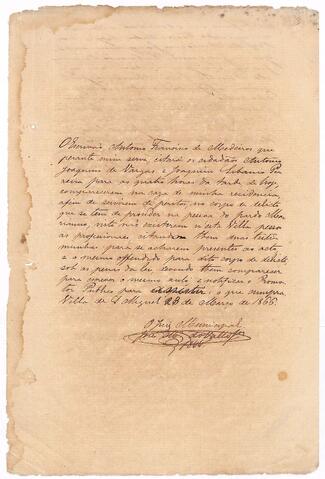 O Escrivão Antonio Francisco de Medeiros que
perante mim serve, citará os cidadãos Antonio
Joaquim de Vargas e Joaquim Libanio Pe
reira para as quatro horas da tarde de hoje
comparecerem na caza de minha residencia
afim de servirem de peritos, no corpo de delicto
que se tem de proceder na pessoa do pardo Ma
rianno, visto não existirem n'esta Villa pesso
as profissionaes, citando bem duas testem
munhas para se acharem presentes ao acto
e o mesmo offendido para dito corpo de delicto
sob as penas da lei, devendo bem comparecer
para o mesmo auto e notificar o Promo
tor Publico para assistir: o que cumpra
Villa de S. Miguel 23 de Março de 1866.
O Juiz Municipal
José